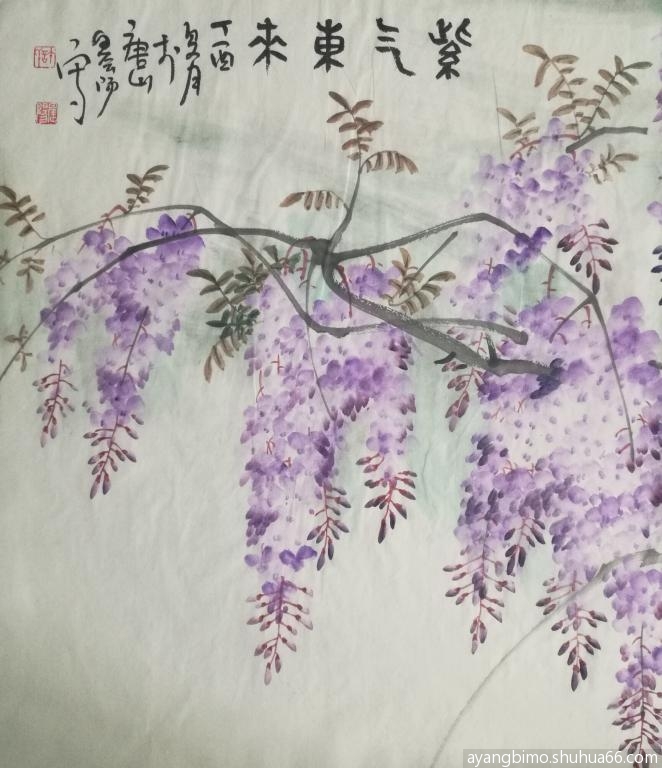 紫气東来
丁酉
夏月
于
唐山
墨师
写
ayangbimo.shuhua66.com